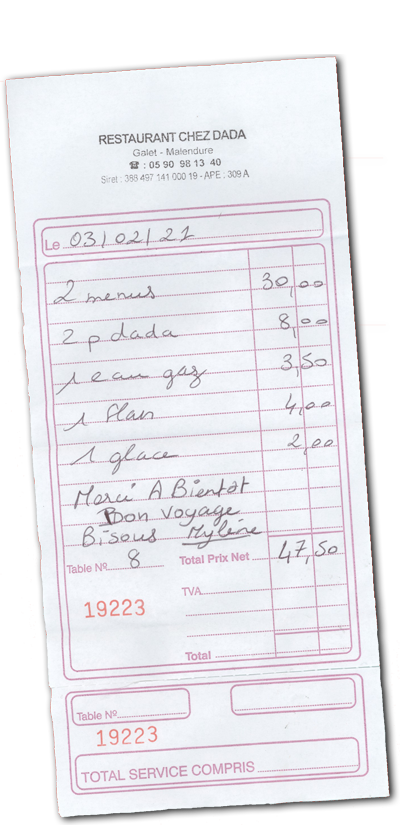 RESTAURANT CHEZ DADA
Galet - Malendure
☎ : 05 90 98 13 40
Siret : 388 497 141 000 19 - APE : 309 A
Le 03/02/21
2 menus 30,00
2 p dada 8,00
1 eau gaz 3,50
1 flan 4,00
1 glace 2,00
Merci A Bientôt
Bon Voyage
Bisous Mylène
Table Nº 8 Total Prix Net 47,50
TVA
19223
Total
Table Nº
19223
TOTAL SERVICE COMPRIS